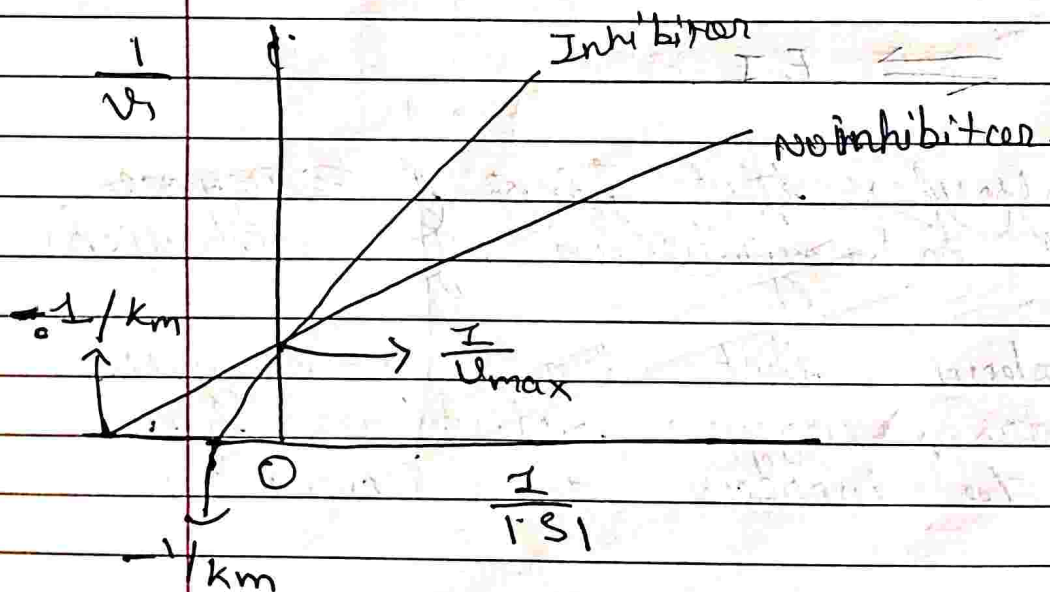 1/v₁
Inhibitor
No inhibitor
-1/km
1/Vmax
O
1/|S|
-1/km